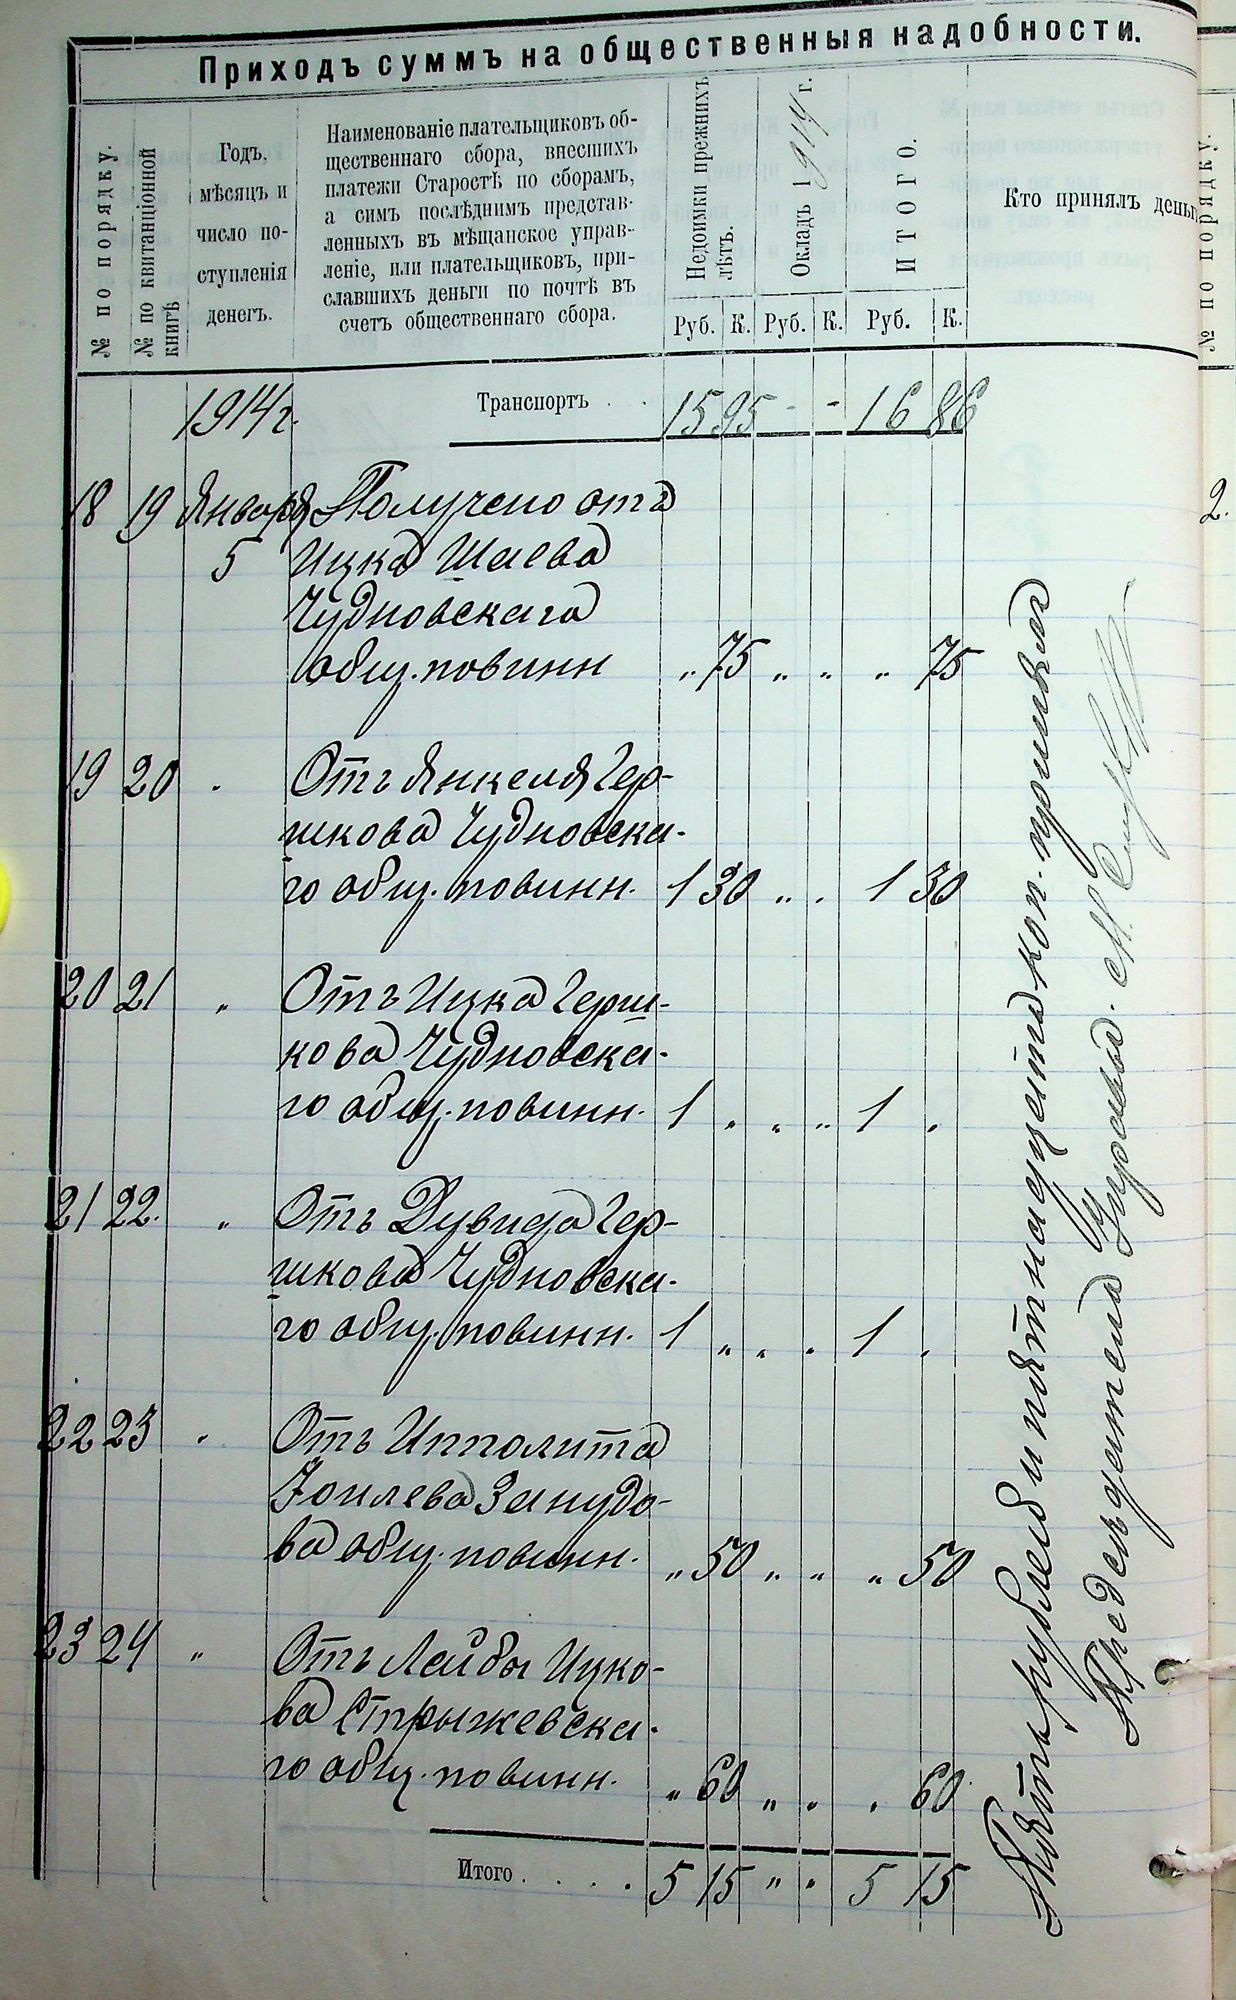 Приходъ суммъ на общественныя надобности.
№ по порядку.
№ по квитанціонной
книгѣ
Годъ,
мѣсяцъ и
число по-
ступленія
денегъ.
Наименованіе плательщиковъ об-
щественнаго сбора, внесшихъ
платежи Старостѣ по сборамъ,
а симъ послѣднимъ представ-
ленныхъ въ мѣщанское управ-
леніе, или плательщиковъ, при-
славшихъ деньги по почтѣ въ
счетъ общественнаго сбора.
Недоимки прежнихъ
лѣтъ.
Окладъ 1914 г.
ИТОГО.
Кто принялъ деньг
Руб. К. Руб. К. Руб. К.
№ по порядку.
1914 г. Транспортъ . . 15 95 - - 16 86
18 19 Января Получено отъ
5 Ицка Шаева
Чудновскаго
общ. повинн „ 75 „ „ „ 75
19 20 „ Отъ Янкеля Гер-
шкова Чудновска-
го общ. повинн. 1 30 „ . 1 30
20 21 „ Отъ Ицка Герш-
кова Чудновска-
го общ. повинн. 1 „ „ „ 1 „
21 22. „ Отъ Дувида Гер-
шкова Чудновска-
го общ. повинн. 1 „ „ . 1 „
22 23 „ Отъ Ипполита
ва общ. повинн. „ 50 „ „ „ 50
23 24 „ Отъ Лейбы Ицко-
ва Стрыжевска-
го общ. повинн. „ 60 „ . . 60
Итого . . . . 5 15 „ „ 5 15
Пять рублей и пятнадцать коп. принялъ
Предсѣдатель Управы.
2.